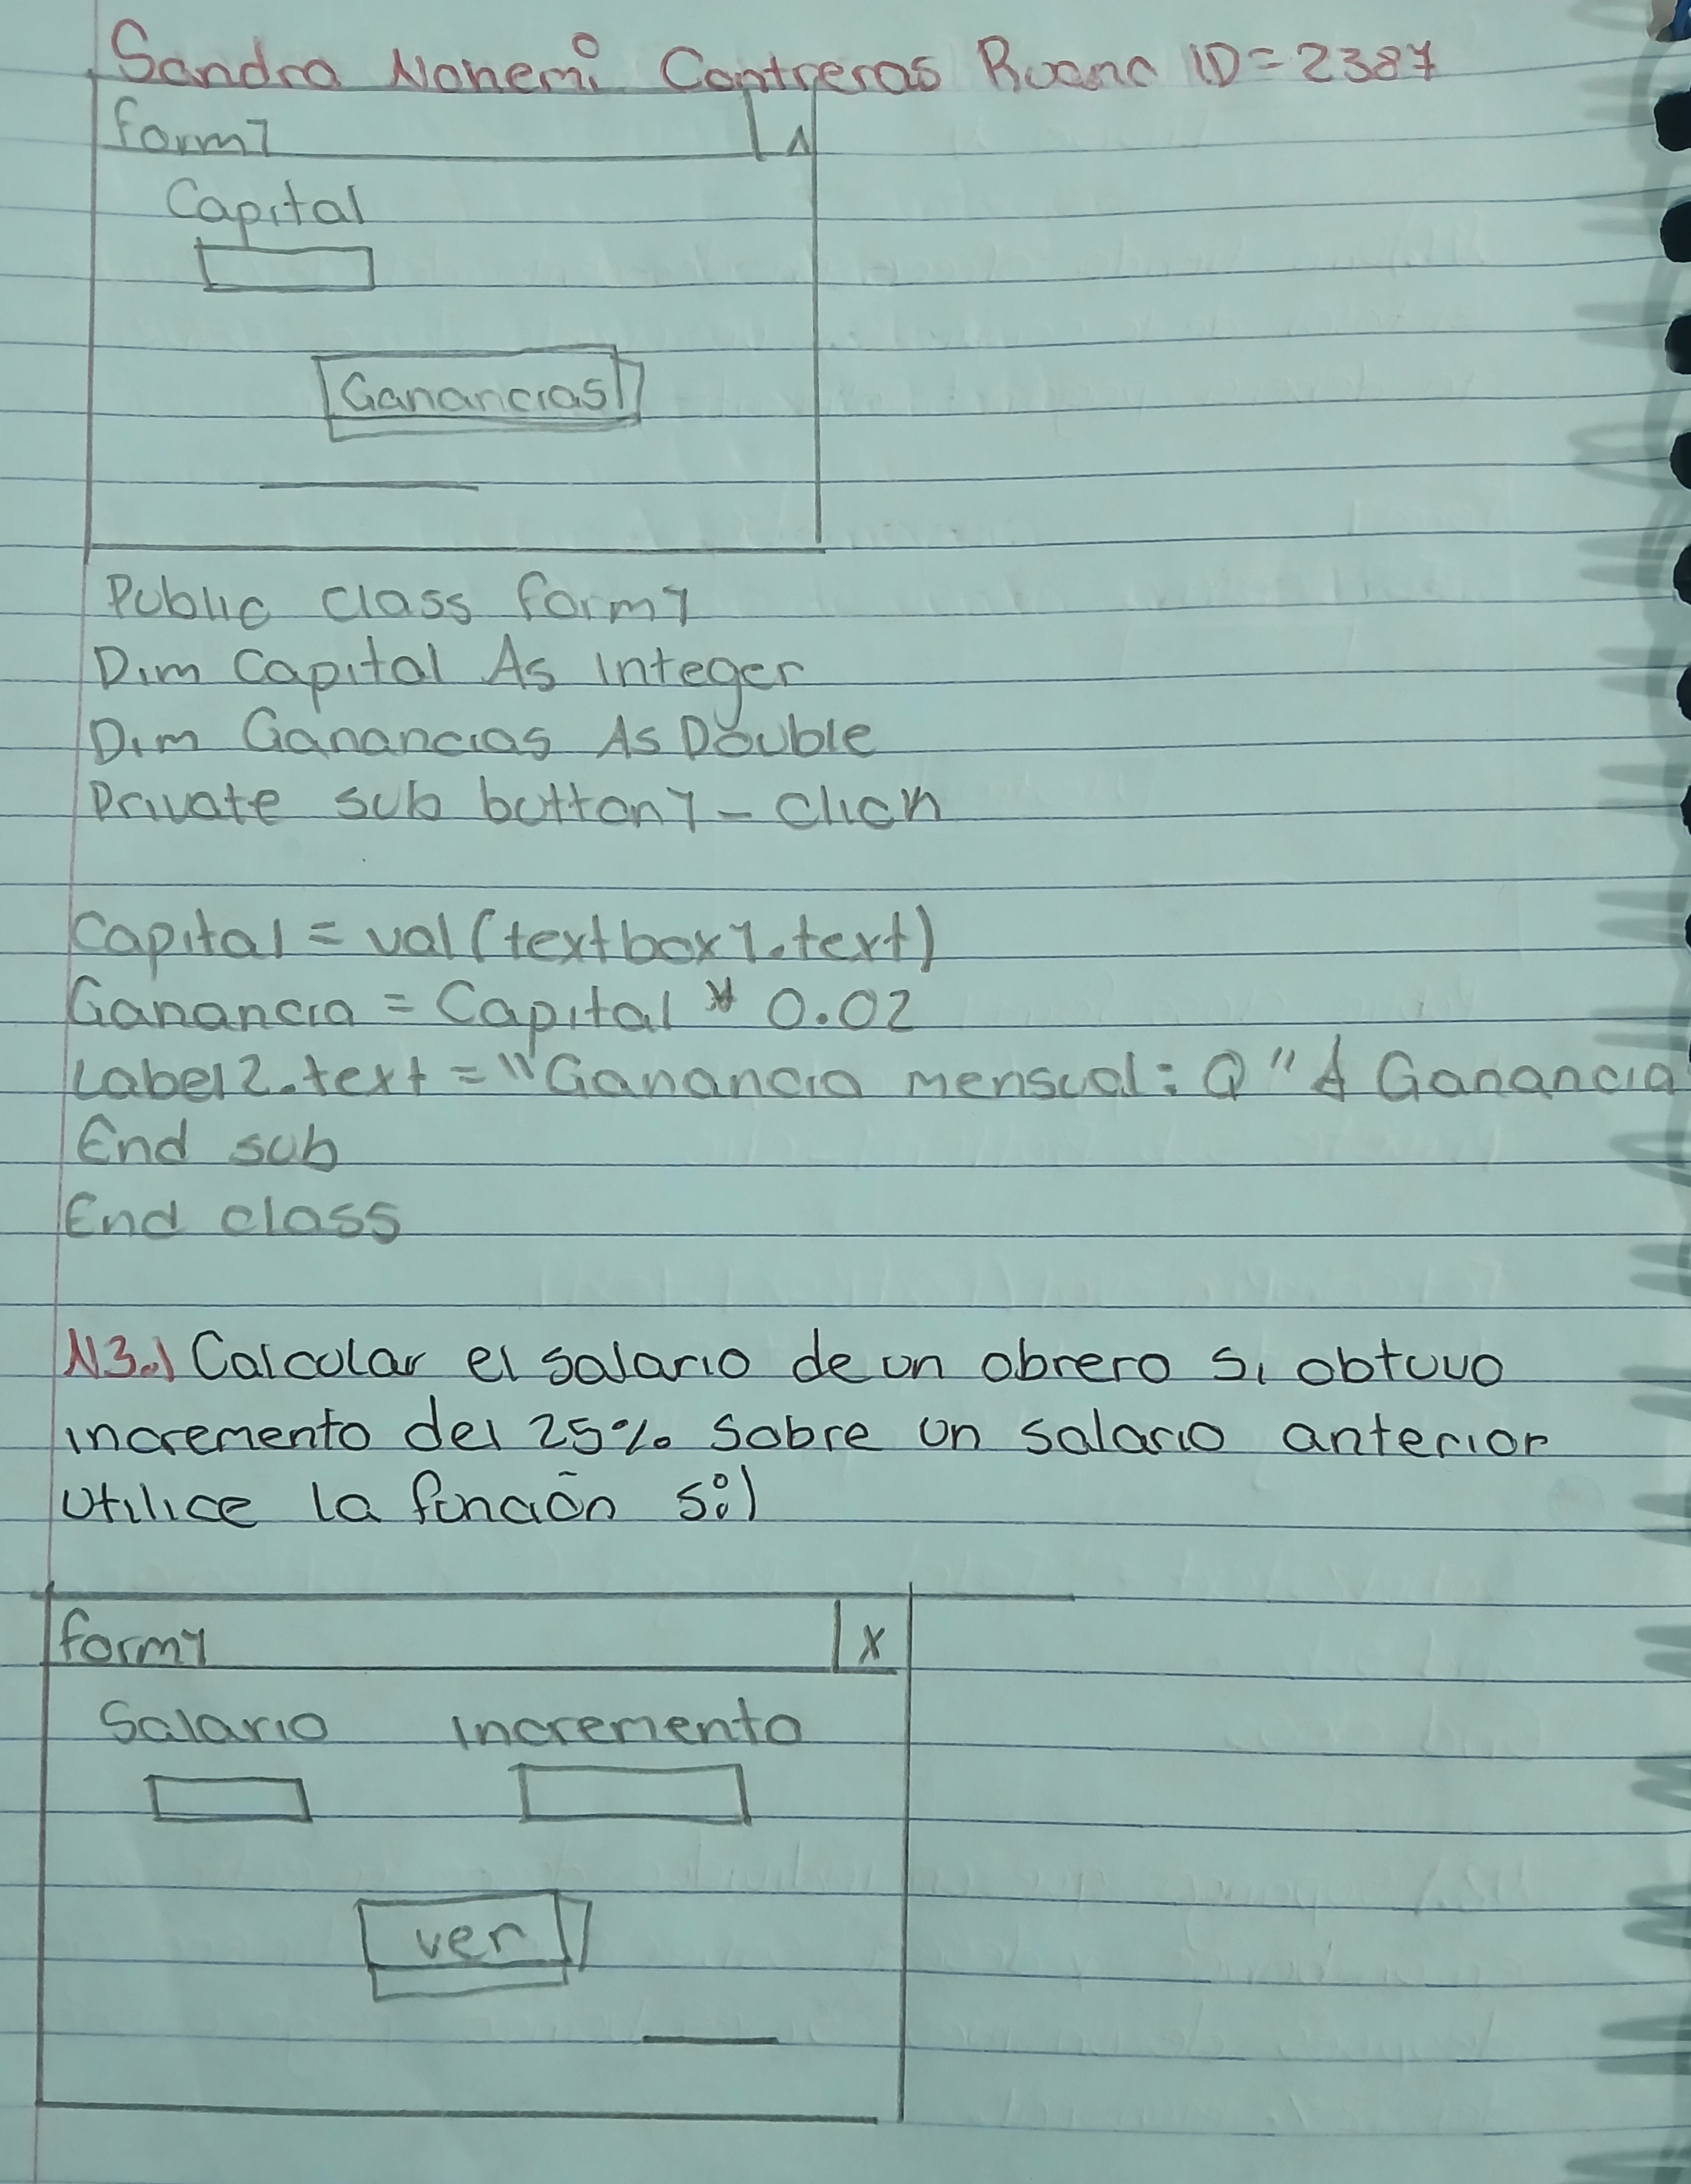 Sandra Nohemi Contreras Ruano ID=2387
form1
Capital
Ganancias
Public class form1
Dim Capital As integer
Dim Ganancias As Double
Private sub button1-click
Capital = val(textbox1.text)
Ganancia = Capital * 0.02
Label2.text = "Ganancia mensual: Q" & Ganancia
End sub
End class
N3.) Calcular el salario de un obrero si obtuvo
incremento del 25% sobre un salario anterior
utilice la función si)
form1 X
Salario incremento
ver